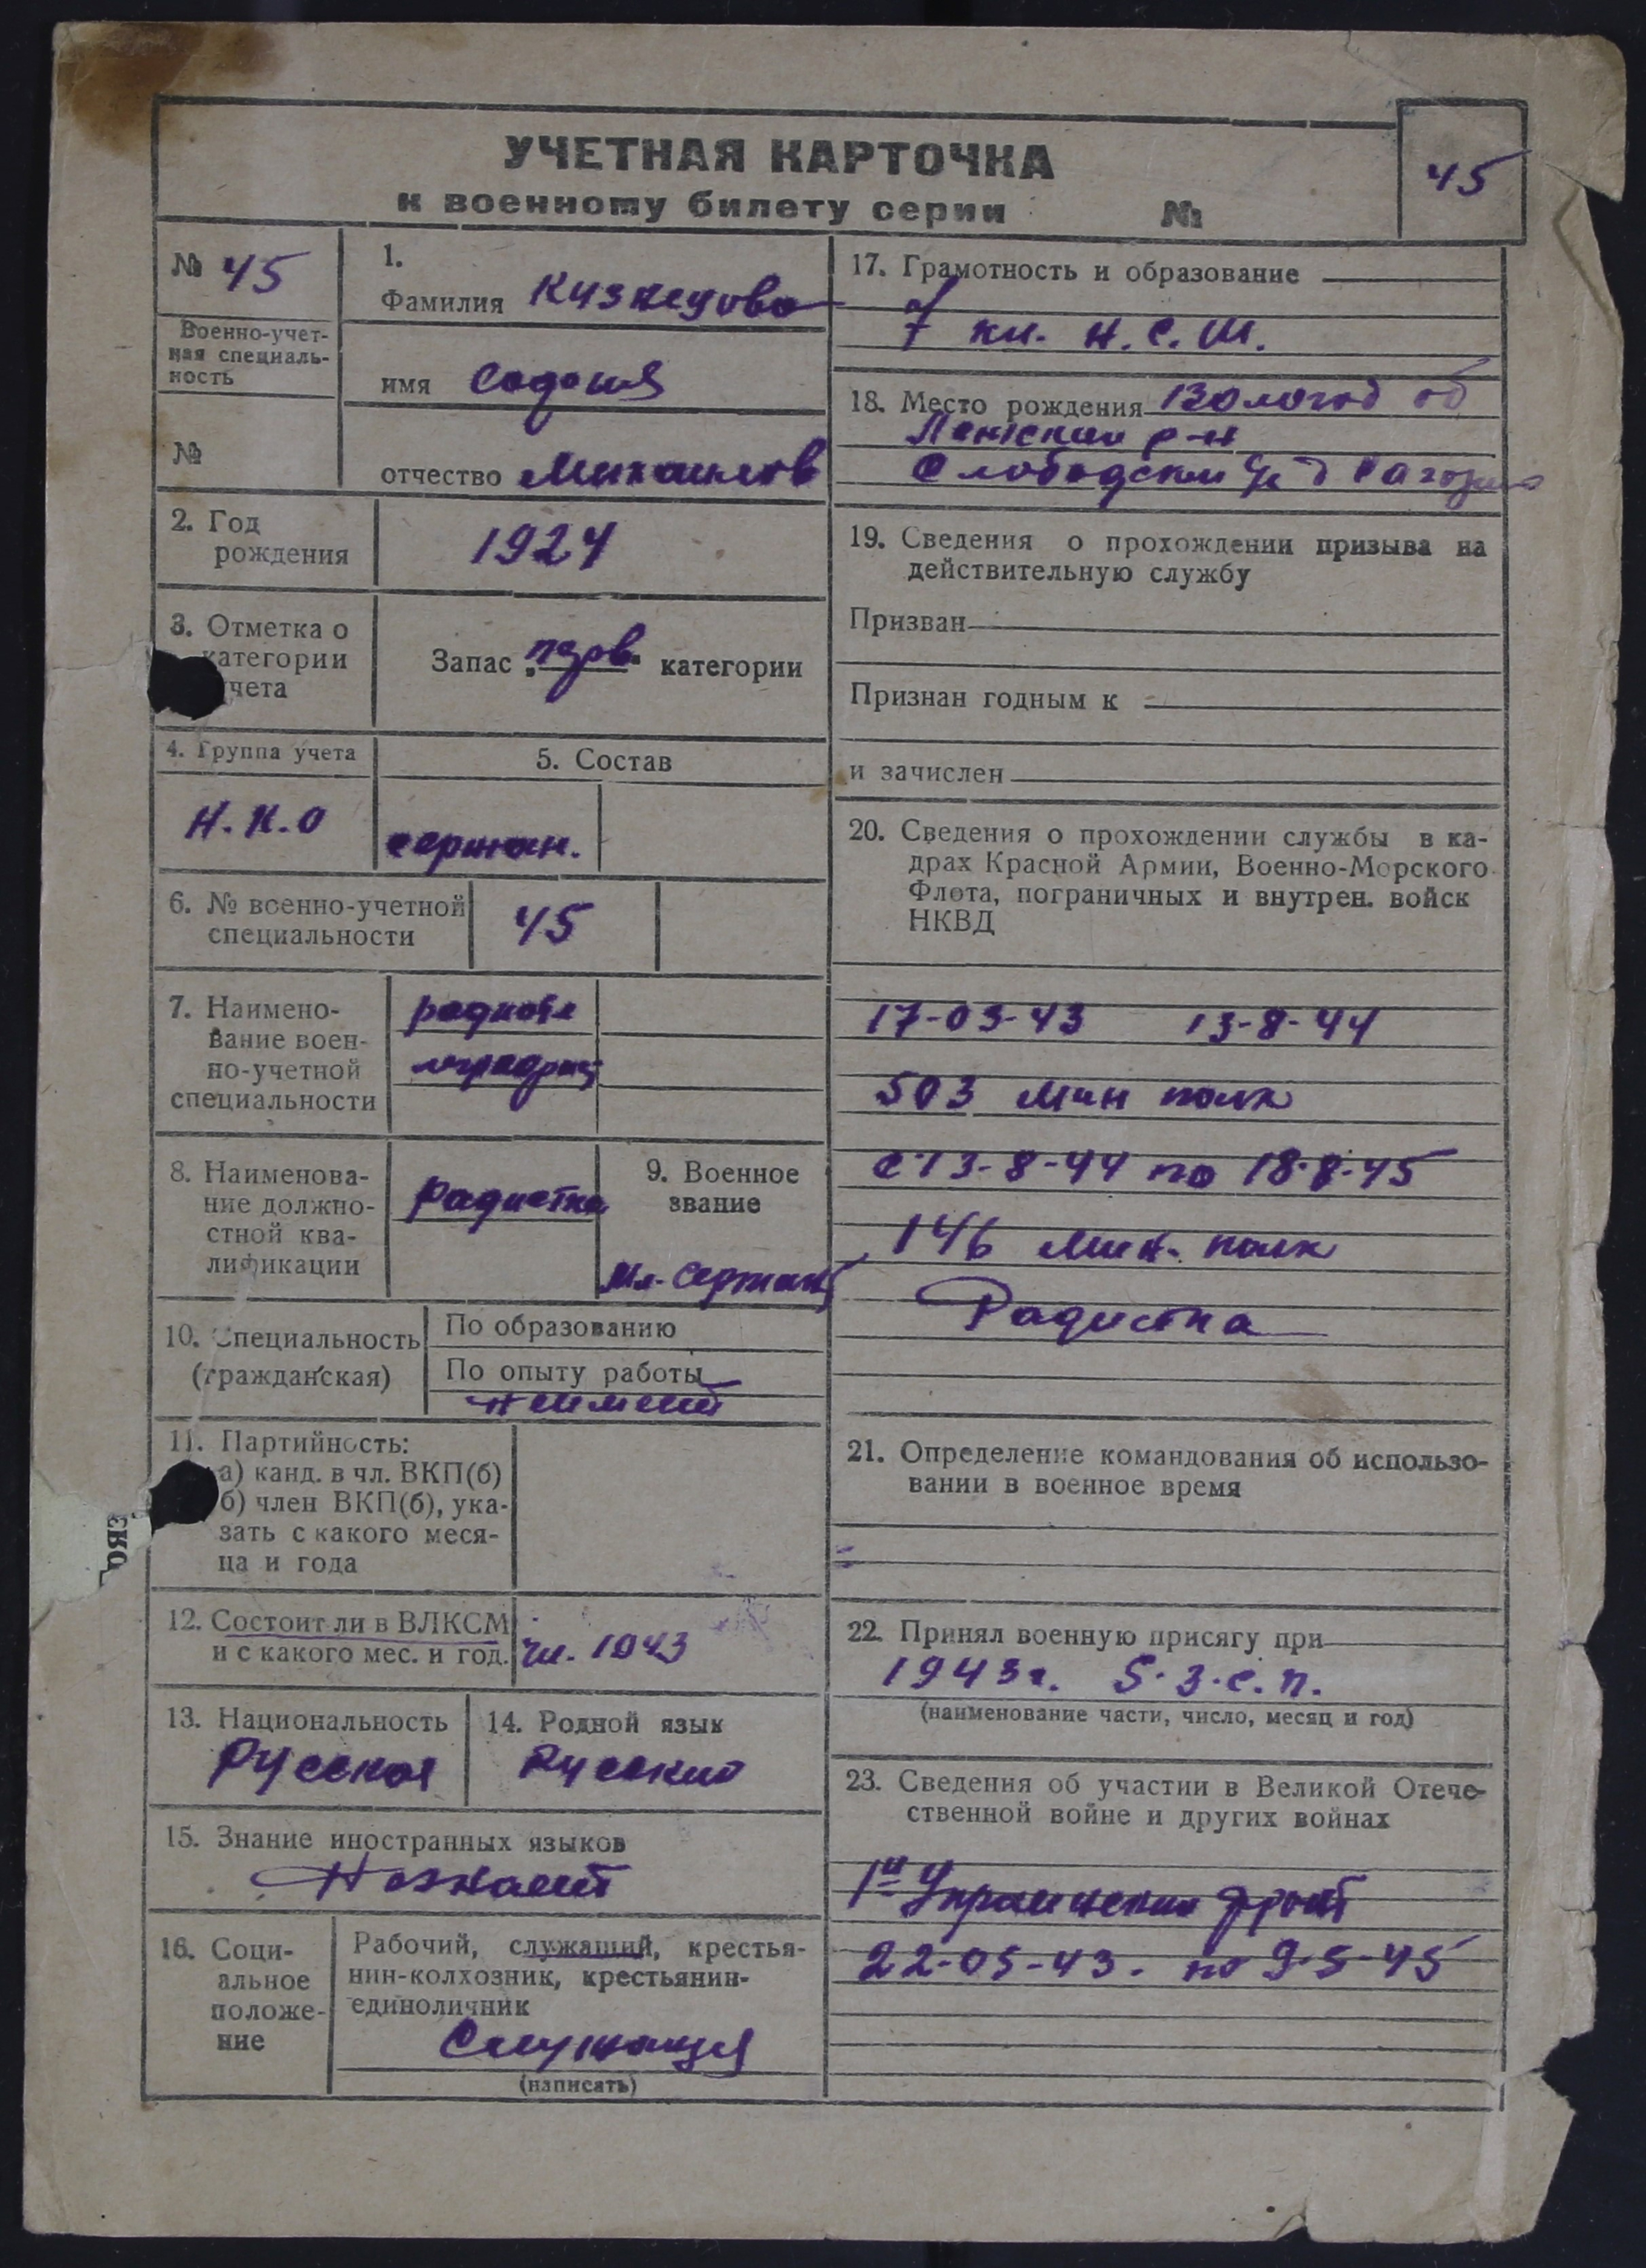 УЧЕТНАЯ КАРТОЧКА
к военному билету серии №
45
№ 45
Военно-учет-
ная специаль-
ность
№
1.
Фамилия Кузнецова
имя
отчество Михайлов
2. Год
рождения
1924
3. Отметка о
категории
учета
Запас „перв“ категории
4. Группа учета
Н.К.О
5. Состав
сержан.
6. № военно-учетной
специальности
45
7. Наимено-
вание воен-
но-учетной
специальности
радиоте
леграфис
8. Наименова-
ние должно-
стной ква-
лификации
радистка
9. Военное
звание
Мл. Сержант
10. Специальность
(гражданская)
По образованию
По опыту работы
неимеет
11. Партийность:
а) канд. в чл. ВКП(б)
б) член ВКП(б), ука-
зать с какого меся-
ца и года
12. Состоит ли в ВЛКСМ
и с какого мес. и год.
чл. 1943
13. Национальность
Русская
14. Родной язык
Русский
15. Знание иностранных языков
Незнает
16. Соци-
альное
положе-
ние
Рабочий, служащий, крестья-
нин-колхозник, крестьянин-
единоличник
Служащая
(написать)
17. Грамотность и образование
7 кл. Н.С.Ш.
18. Место рождения Вологод об
Ленский р-н
Слободской с/с д
19. Сведения о прохождении призыва на
действительную службу
Призван
Признан годным к
и зачислен
20. Сведения о прохождении службы в ка-
драх Красной Армии, Военно-Морского
Флота, пограничных и внутрен. войск
НКВД
17-03-43 13-8-44
503 мин полк
с 13-8-44 по 18-8-45
146 мин. полк
Радистка
21. Определение командования об использо-
вании в военное время
22. Принял военную присягу при
1943г. 5.З.С.П.
(наименование части, число, месяц и год)
23. Сведения об участии в Великой Отече-
ственной войне и других войнах
1й Украинский фронт
22-05-43. по 9-5-45